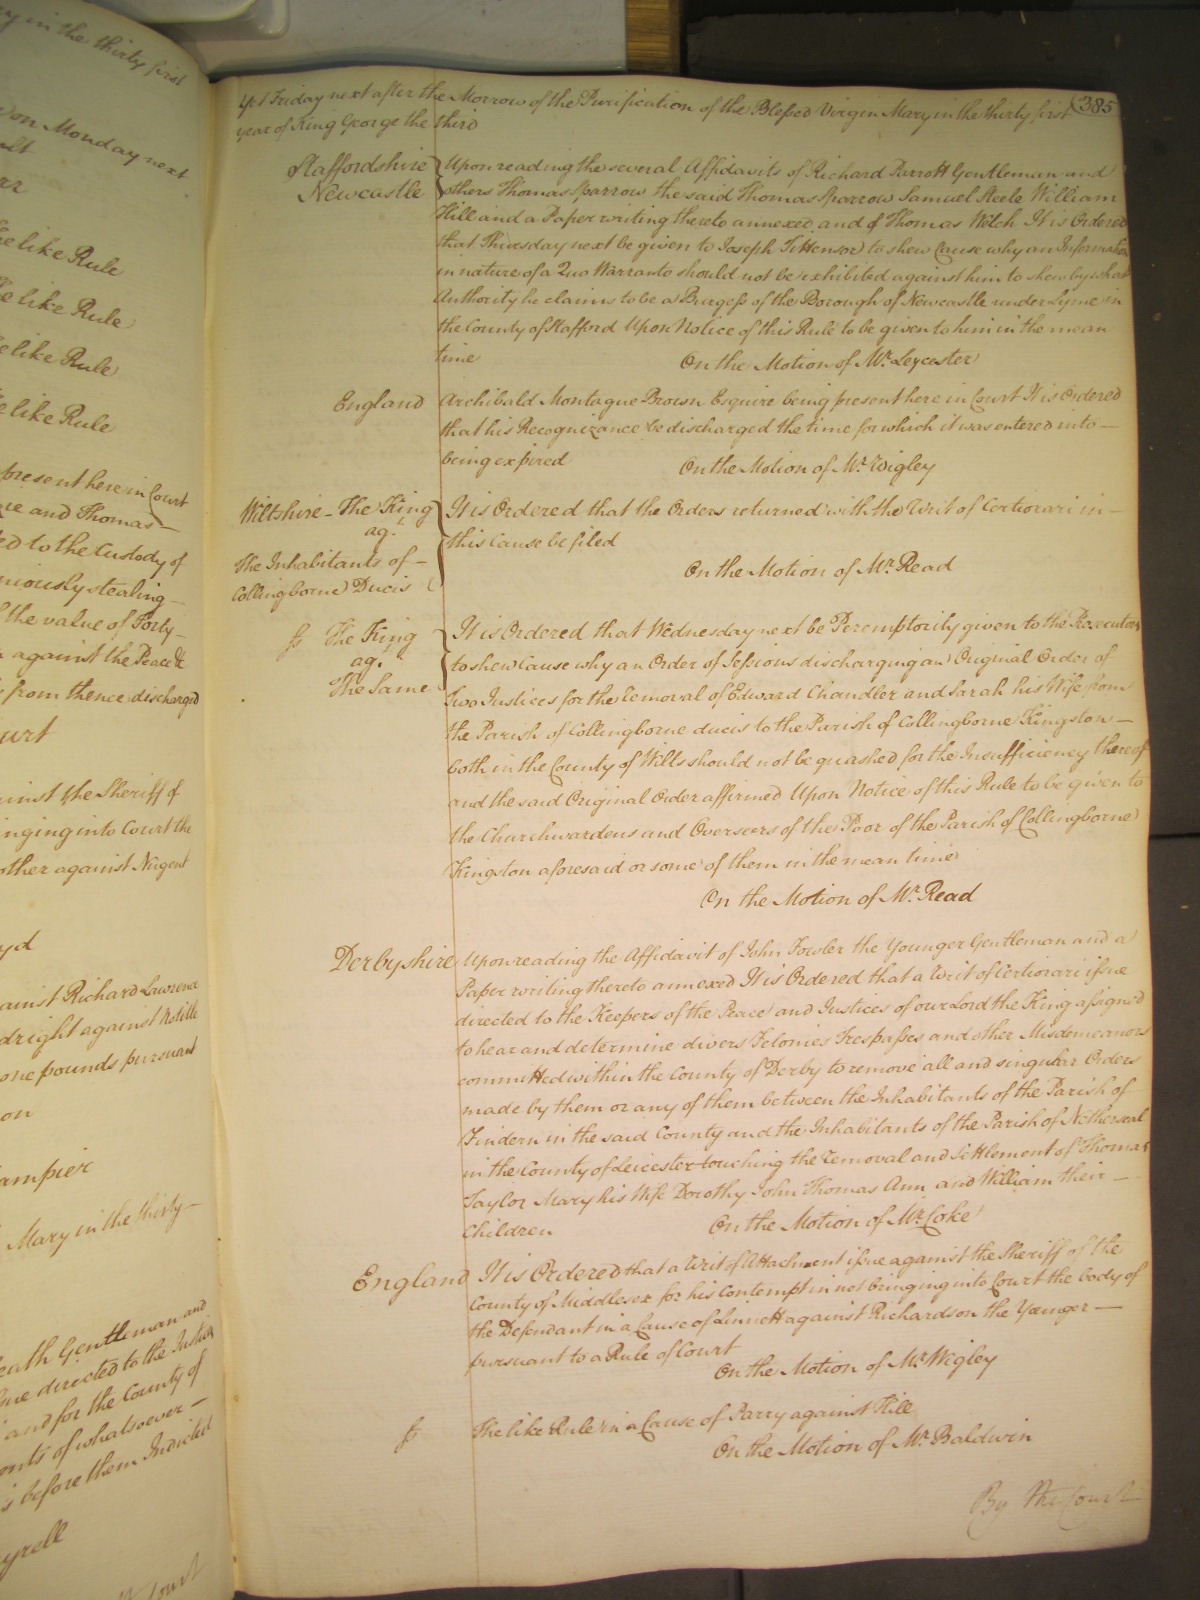 y in the thirty first
on Monday next
like Rule
like Rule
like Rule
like Rule
present here in Court
and Thomas
to the Custody of
stealing
the value of Forty
against the Peace &c
from thence discharged
against the Sheriff of
bringing into Court the
other against Nugent
against Richard Lawrence
against
one pounds pursuant
on
Mary in the thirty
Gentleman and
directed to the Justices
and for the County of
of whatsoever
before them Indicted
Court
385
Yet Friday next after the Morrow of the Purification of the Blessed Virgin Mary in the thirty first
year of King George the third
Staffordshire
Newcastle
Upon reading the several Affidavits of Richard Parrott Gentleman and
others Thomas Sparrow the said Thomas Sparrow Samuel Steele William
Hill and a Paper writing thereto annexed and of Thomas Welch It is Ordered
that Thursday next be given to Joseph Tittensor to shew Cause why an Information
in nature of a Quo Warranto should not be exhibited against him to shew by what
Authority he claims to be a Burgess of the Borough of Newcastle under Lyme in
the County of Stafford Upon Notice of this Rule to be given to him in the mean
time
On the Motion of Mr. Leycester
England
Archibald Montague Brown Esquire being present here in Court It is Ordered
that his Recognizance be discharged the time for which it was entered into
being expired
On the Motion of Mr. Wigley
Wiltshire - The King
agt.
The Inhabitants of
Collingborne Ducis
It is Ordered that the Orders returned with the Writ of Certiorari in
this Cause be filed
On the Motion of Mr. Read
The King
agt.
The Same
It is Ordered that Wednesday next be Peremptorily given to the Prosecutors
to shew Cause why an Order of Sessions discharging an Original Order of
Two Justices for the removal of Edward Chandler and Sarah his Wife from
the Parish of Collingborne ducis to the Parish of Collingborne Kingston
both in the County of Wilts should not be quashed for the Insufficiency thereof
and the said Original Order affirmed Upon Notice of this Rule to be given to
the Churchwardens and Overseers of the Poor of the Parish of Collingborne
Kingston aforesaid or some of them in the mean time
On the Motion of Mr. Read
Derbyshire
Upon reading the Affidavit of John Fowler the Younger Gentleman and a
Paper writing thereto annexed It is Ordered that a Writ of Certiorari issue
directed to the Keepers of the Peace and Justices of our Lord the King assigned
to hear and determine divers Felonies Trespasses and other Misdemeanors
committed within the County of Derby to remove all and singular Orders
made by them or any of them between the Inhabitants of the Parish of
Findern in the said County and the Inhabitants of the Parish of Netherseal
in the County of Leicester touching the removal and Settlement of Thomas
Taylor Mary his Wife Dorothy John Thomas Ann and William their
Children
On the Motion of Mr. Coke
England
It is Ordered that a Writ of Attachment issue against the Sheriff of the
County of Middlesex for his Contempt in not bringing into Court the body of
the Defendant in a Cause of Linnett against Richardson the Younger
pursuant to a Rule of Court
On the Motion of Mr. Wigley
The like Rule in a Cause of Parry against Hill
On the Motion of Mr. Baldwin
By the Court